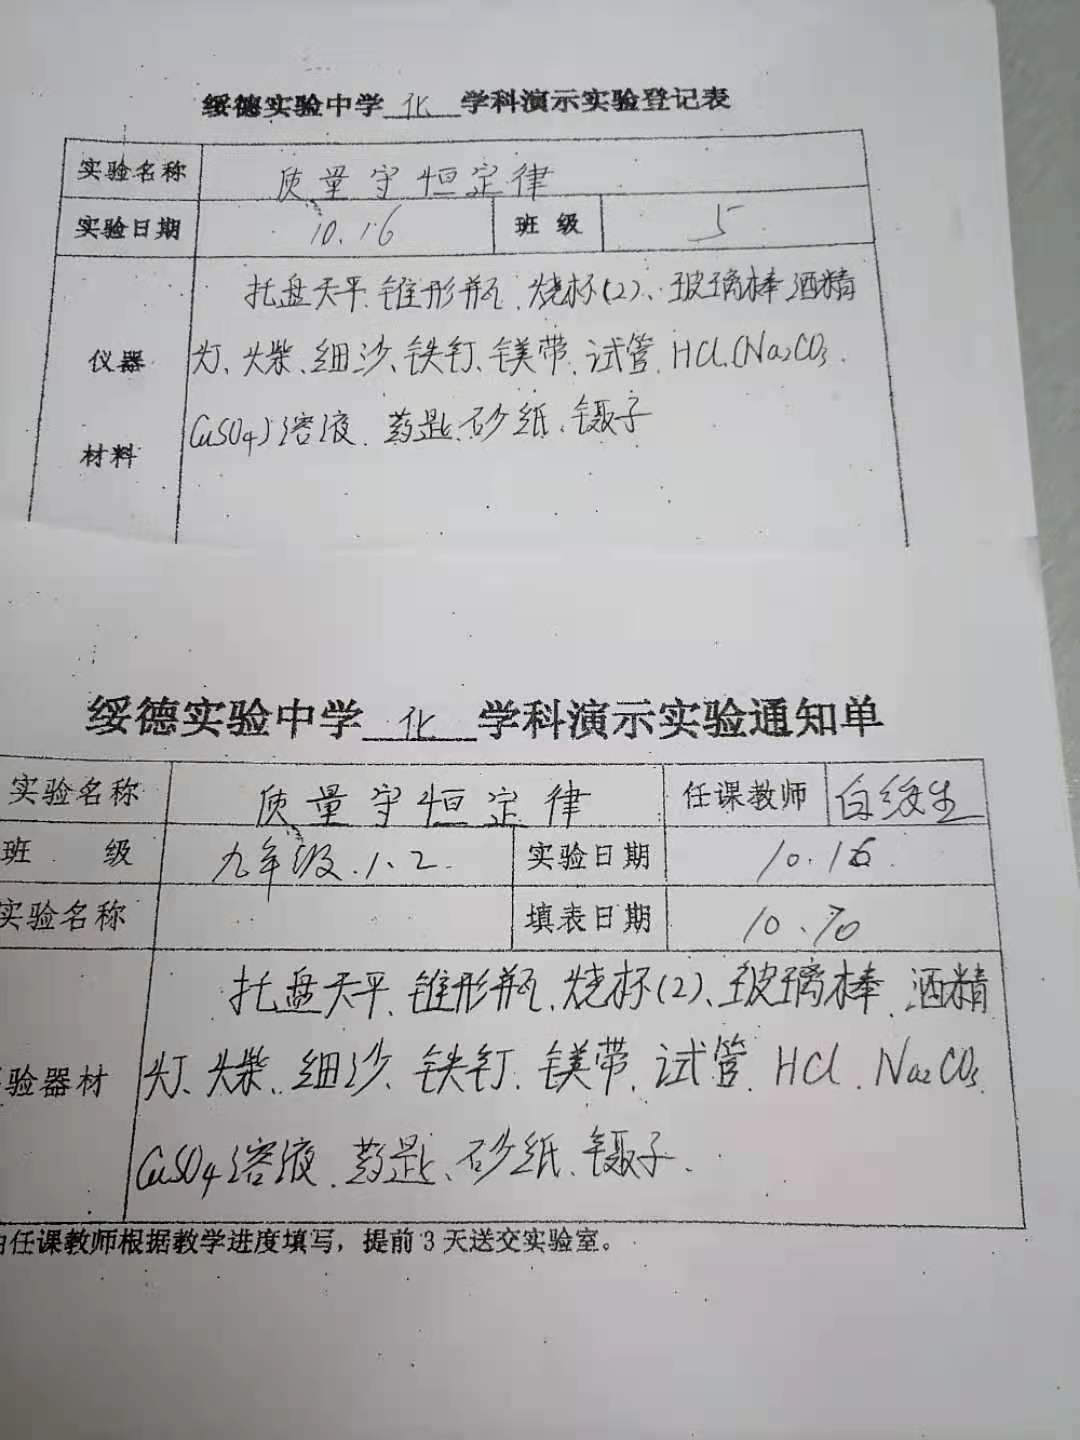 绥德实验中学 化 学科演示实验登记表
实验名称 质量守恒定律
实验日期 10.16 班 级 5
托盘天平、锥形瓶、烧杯(2)、玻璃棒、酒精
仪器 灯、火柴、细沙、铁钉、镁带、试管、HCl、(Na2CO3、
材料 CuSO4)溶液、药匙、砂纸、镊子
绥德实验中学 化 学科演示实验通知单
实验名称 质量守恒定律 任课教师 白
班 级 九年级.1.2. 实验日期 10.16.
实验名称 填表日期 10.10
托盘天平、锥形瓶、烧杯(2)、玻璃棒、酒精
验器材 灯、火柴、细沙、铁钉、镁带、试管、HCl、Na2CO3、
CuSO4溶液、药匙、砂纸、镊子.
由任课教师根据教学进度填写，提前3天送交实验室。